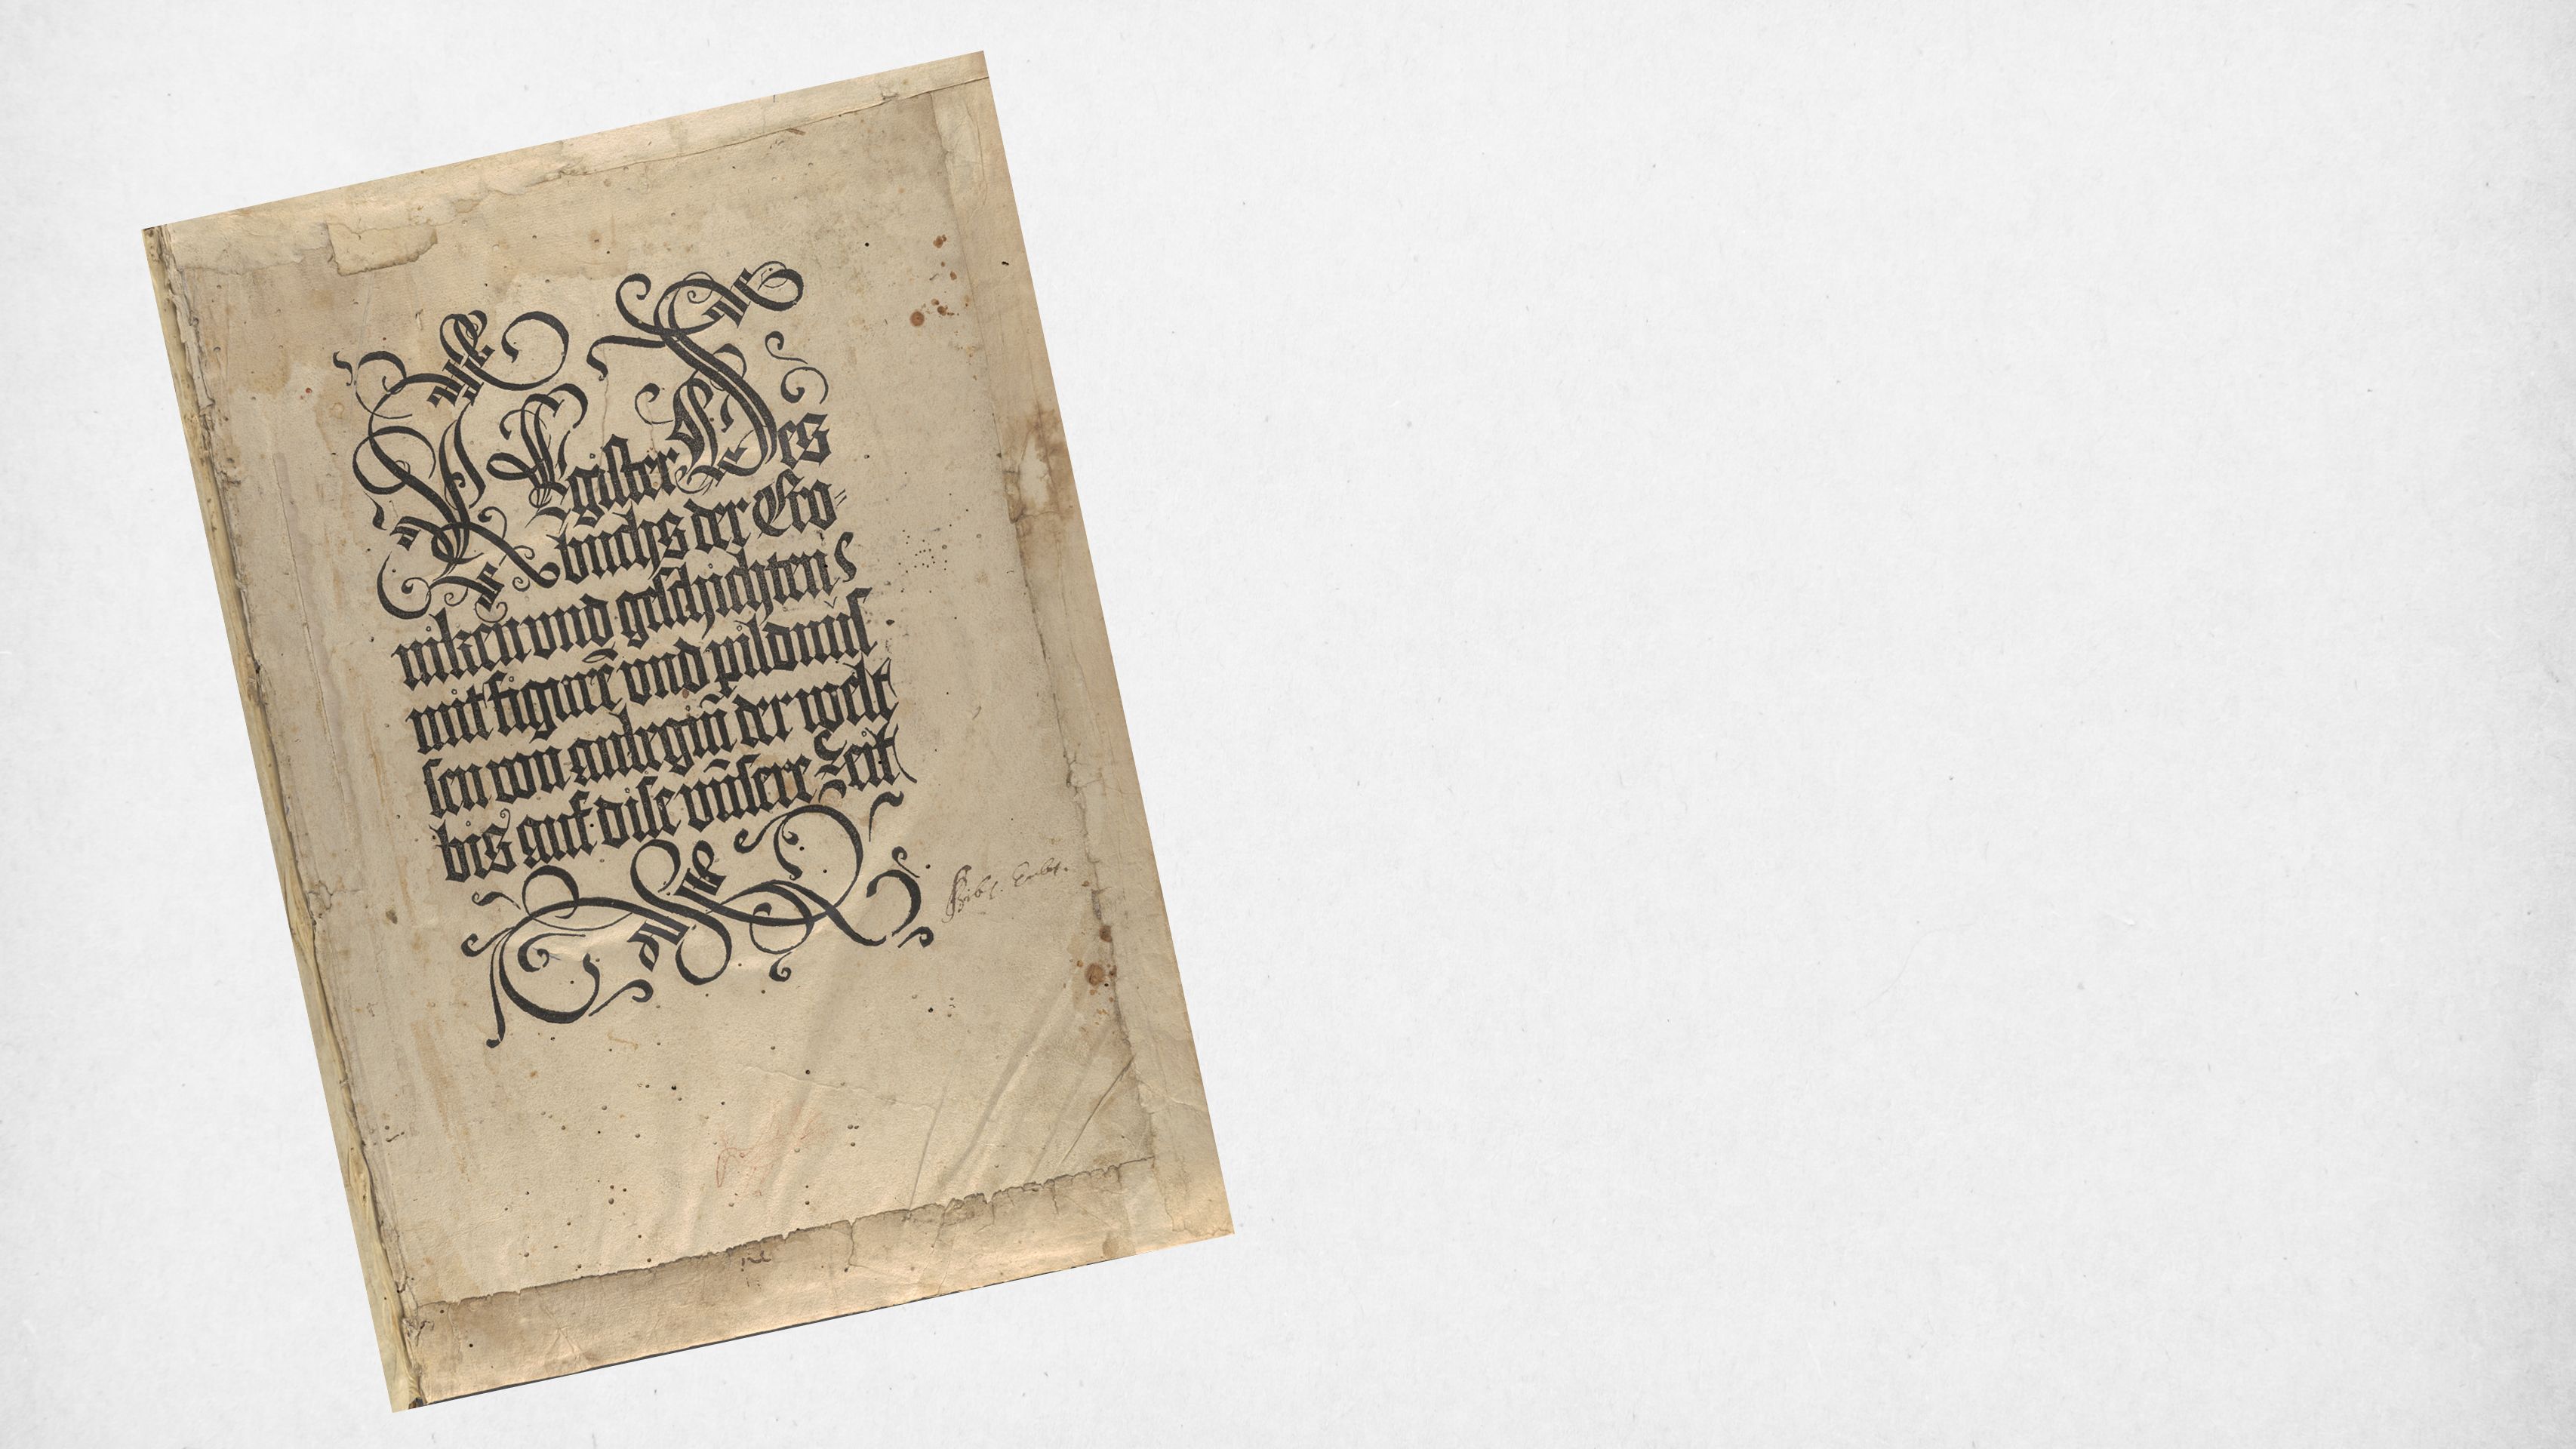 REgister Des
buchs der Cro=
niken vnd geschichten
mit figurē vnd pildnus
sen von anbegiñ der welt
bis auf dise vñsere Zeit